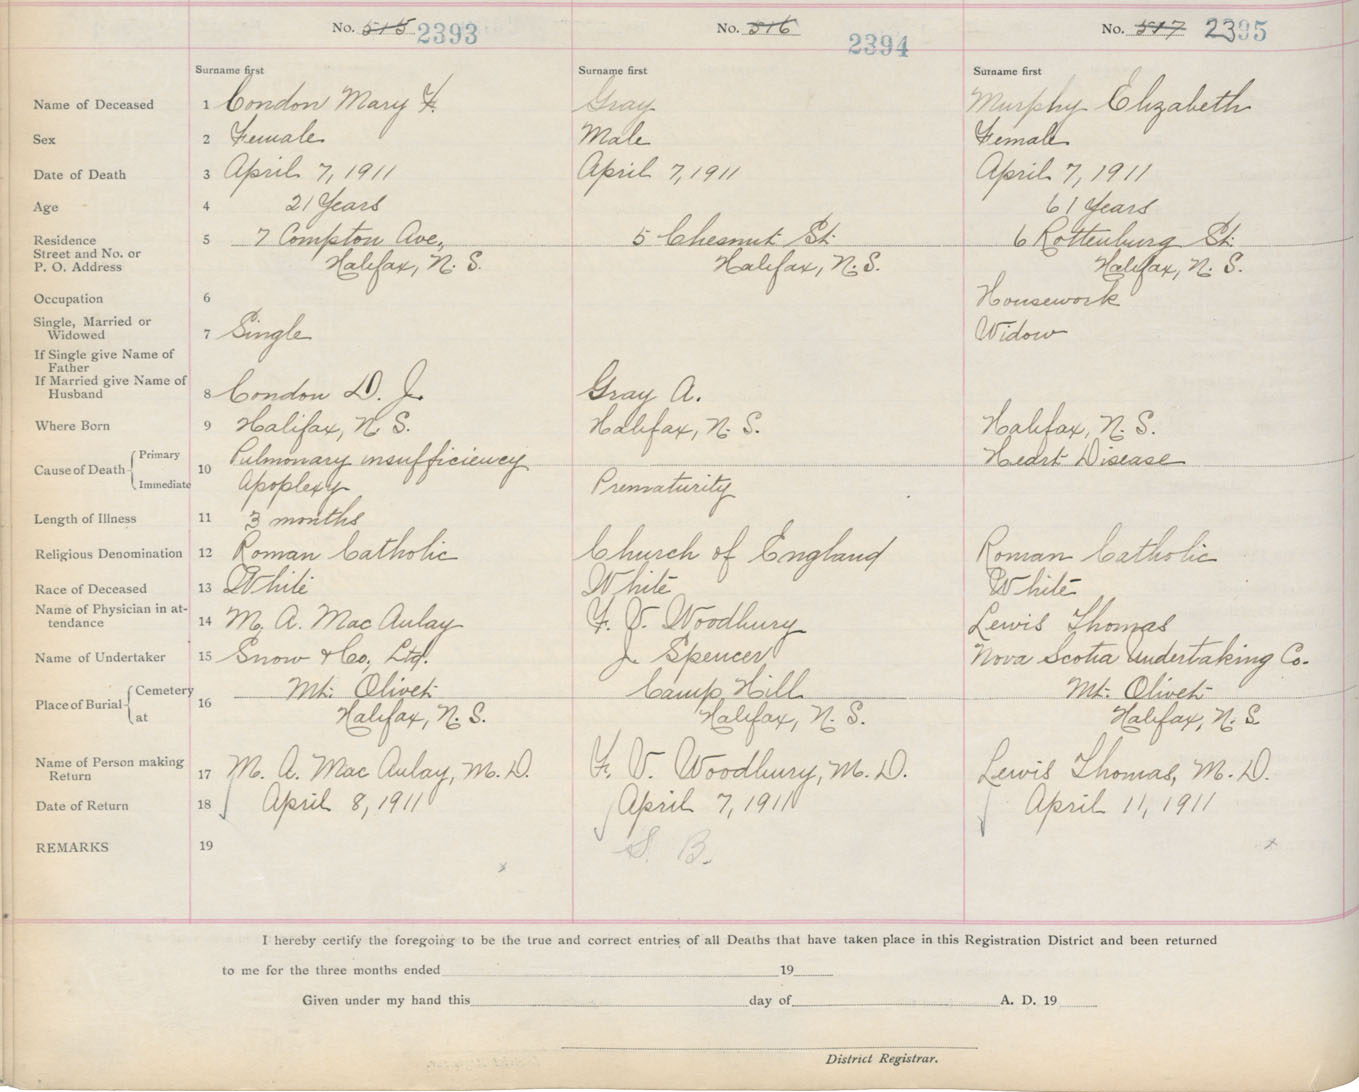 No. 515 2393
No. 516 2394
No. 517 2395
Surname first Surname first Surname first
Name of Deceased 1 Condon Mary F. Gray Murphy Elizabeth
Sex 2 Female Male Female
Date of Death 3 April 7, 1911 April 7, 1911 April 7, 1911
Age 4 21 Years 61 Years
Residence 5 7 Compton Ave, 5 Chesnut St. 6 Rottenburg St.
Street and No. or
P. O. Address Halifax, N. S. Halifax, N. S. Halifax, N. S.
Occupation 6 Housework
Single, Married or
Widowed 7 Single Widow
If Single give Name of
Father
If Married give Name of
Husband 8 Condon D. J. Gray A.
Where Born 9 Halifax, N. S. Halifax, N. S. Halifax, N. S.
Cause of Death Primary 10 Pulmonary insufficiency Heart Disease
Immediate Apoplexy Prematurity
Length of Illness 11 3 months
Religious Denomination 12 Roman Catholic Church of England Roman Catholic
Race of Deceased 13 White White White
Name of Physician in at-
tendance 14 M. A. Mac Aulay F. V. Woodbury Lewis Thomas
Name of Undertaker 15 Snow & Co, Ltd. J. Spencer Nova Scotia Undertaking Co.
Place of Burial Cemetery 16 Mt. Olivet Camp Hill Mt. Olivet
at Halifax, N. S. Halifax, N. S. Halifax, N. S.
Name of Person making
Return 17 M. A. Mac Aulay, M. D. F. V. Woodbury, M. D. Lewis Thomas, M. D.
Date of Return 18 April 8, 1911 April 7, 1911 April 11, 1911
REMARKS 19 S. B.
I hereby certify the foregoing to be the true and correct entries of all Deaths that have taken place in this Registration District and been returned
to me for the three months ended 19
Given under my hand this day of A. D. 19
District Registrar.